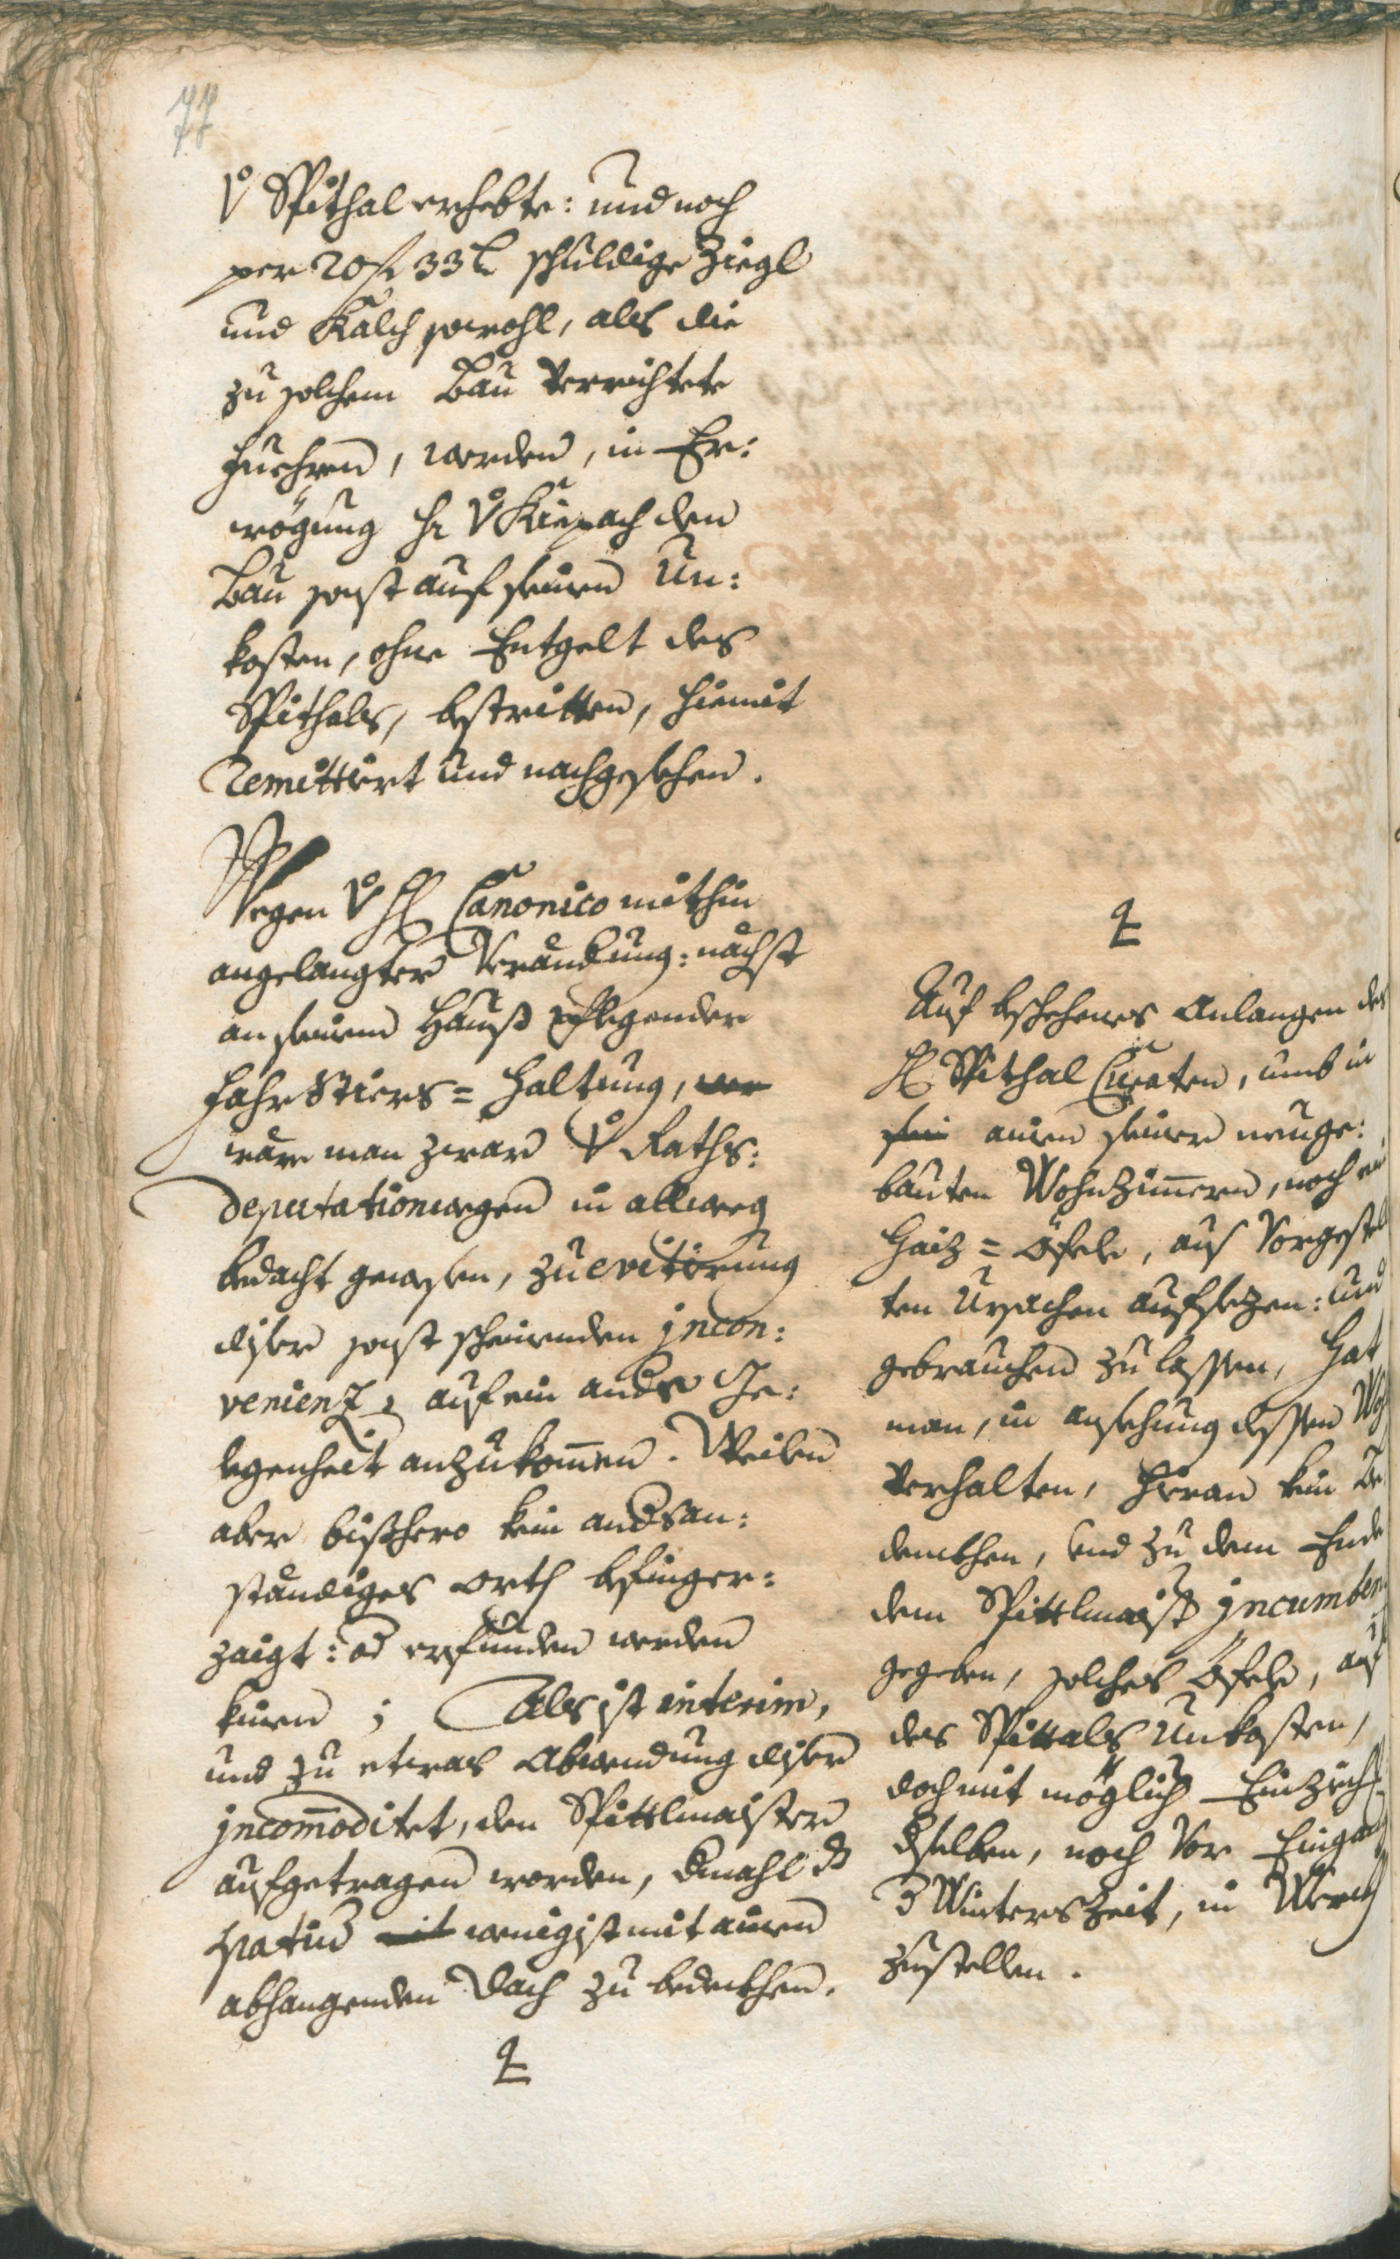 77
V Spithal erhebte: und noch
per 20 f 33 k schuldige Ziegl
und Kalch sowohl, als die
zu solchem Bau verrichtete
Fuehren, werden, in Er:
wögung H: V Kiepach den
Bau sonst auf seinen Un:
kosten, ohne Entgelt des
Spithals, bestritten, hiemit
remittiert und nachgesehen.
Wegen V H: Canonico mithin
angelangter Verändung: nächst
an seinem Hauß pflegender
Fahr Stiers= Haltung,
wäre man zwar V Raths:
Deputationwegen in allweg
bedacht gewesen, zu evitierung
diser sonst scheinenden incon:
venienz, auf ein andre Ge:
legenheit anzukommen. Weilen
aber bißhero kein and an:
ständiges Orth hfinger:
zaigt: od erfunden werden
kinen ; Als ist interim,
und zu etwas Abwendung diser
incommoditet, den Spittlmaister
aufgetragen worden, dmahl dß
wenigist mit ainen
abhangenden Dach zu bedeckhen.
Auf beschehenes Anlangen des
H: Spithal Curaten, umb in
ainen seiner neuge:
bauten Wohnzimmern, noch ein
Haiz= Öfele, aus Vorgestel
ten Ursachen aufsezen: und
gebrauchen zu lassen, Hat
man, in ansehung dessen Wohl
Verhalten, hieran kein Be
denckhen, und zu dem Ende
dem Spittlmaist: incumbenz
gegeben, solches Öfele, auf
des Spittals Unkosten,
doch mit möglich Einzieh
dselben, noch vor Eingang
d Winterszeit, in Werch
zustellen.